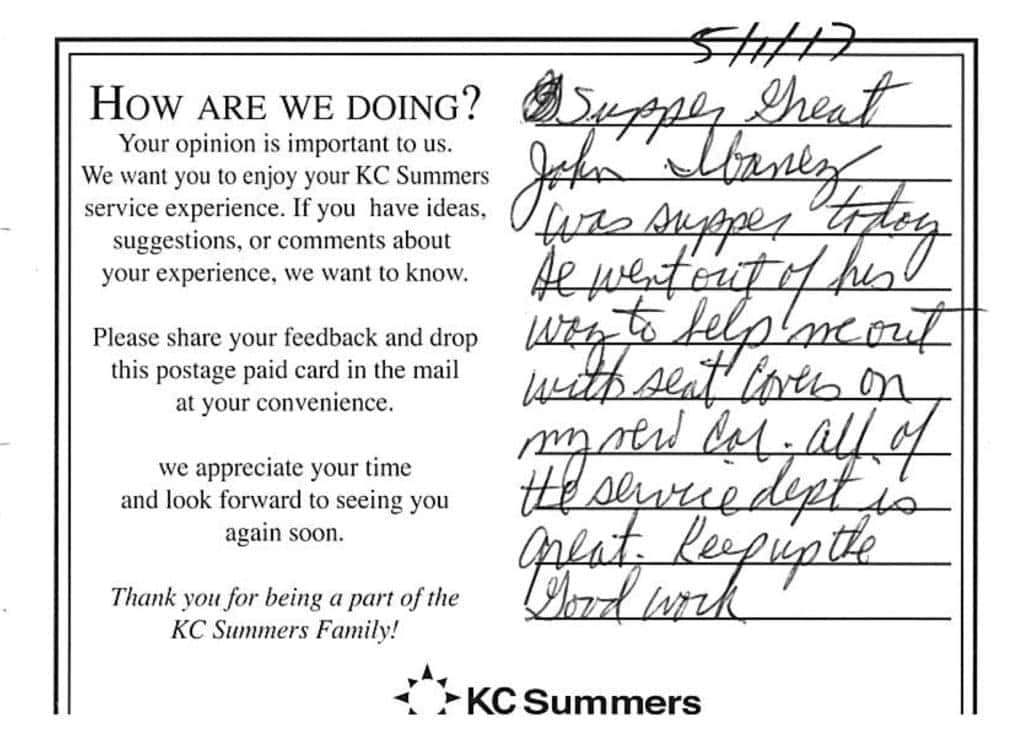 5/11/17
HOW ARE WE DOING?
Your opinion is important to us.
We want you to enjoy your KC Summers
service experience. If you have ideas,
suggestions, or comments about
your experience, we want to know.
Please share your feedback and drop
this postage paid card in the mail
at your convenience.
we appreciate your time
and look forward to seeing you
again soon.
Thank you for being a part of the
KC Summers Family!
Supper Great
John Ibanez
was supper today
He went out of his
way to help me out
with seat covers on
my new car. all of
the service dept is
great. Keep up the
Good work
KC Summers